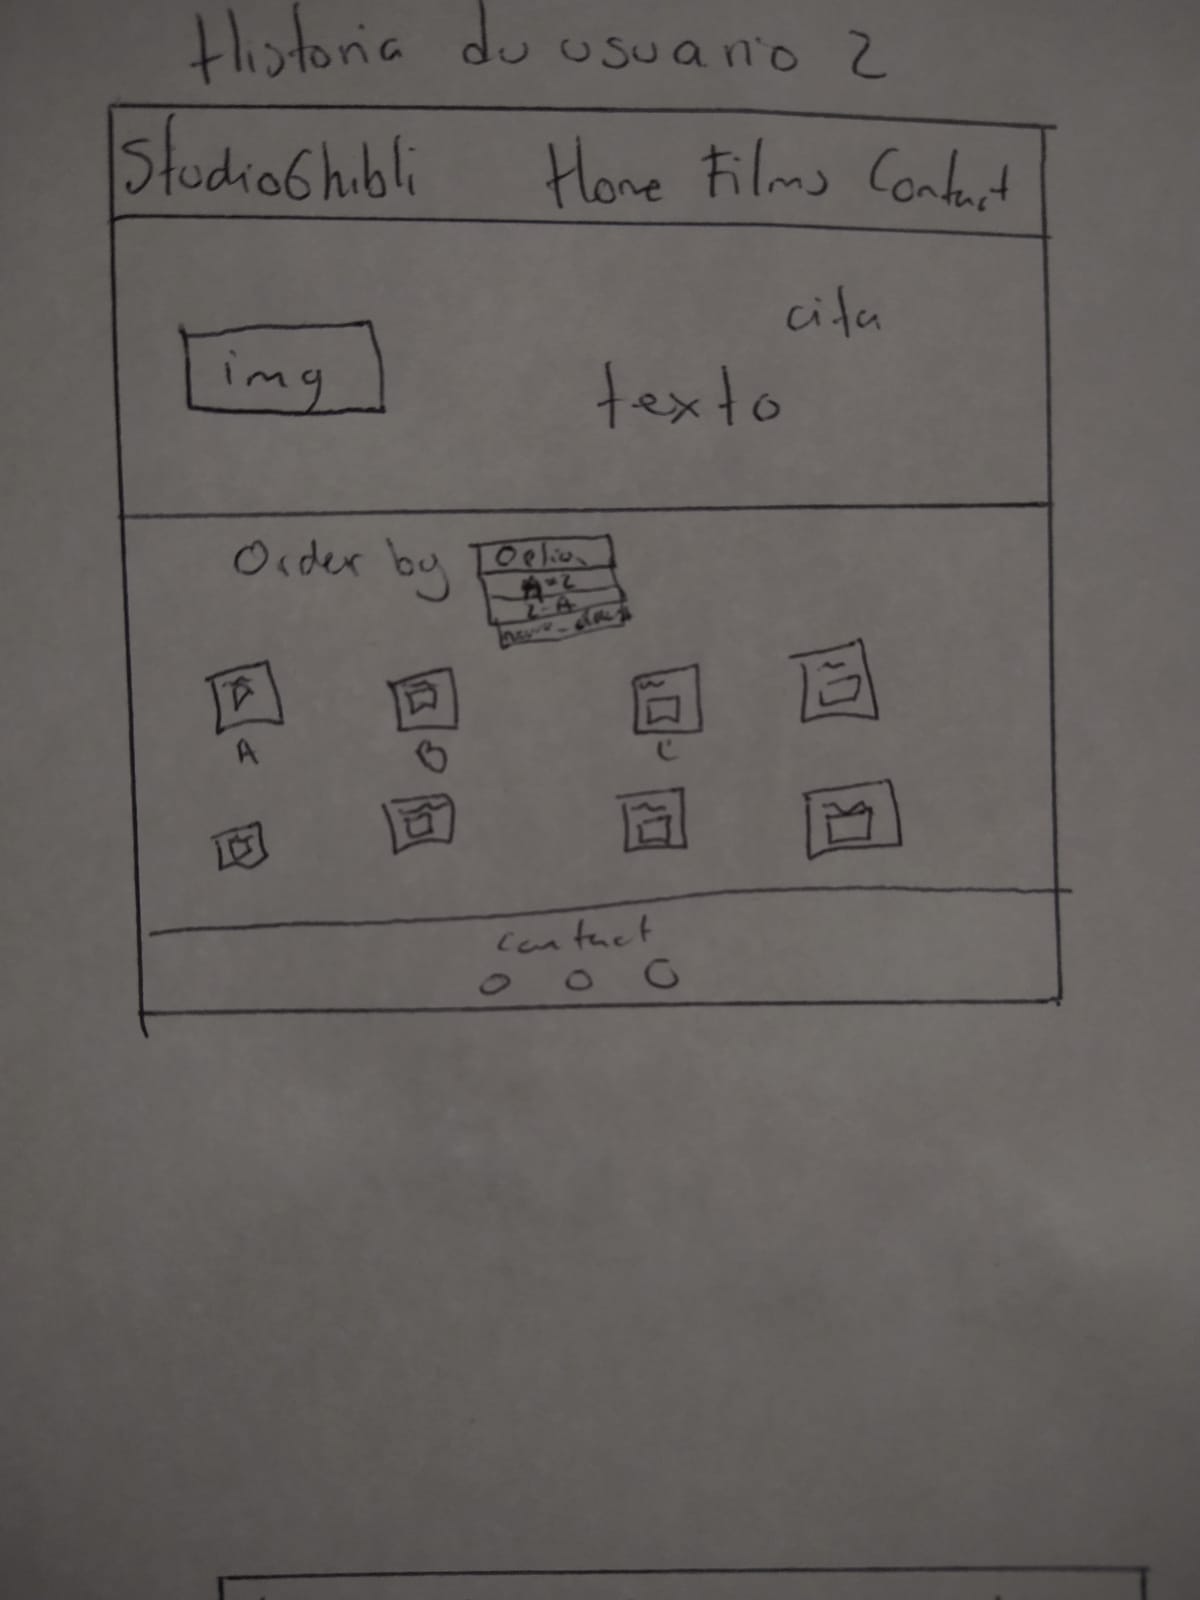 Historia du usuario 2
StudioGhibli Home Films Contact
cita
img
texto
Order by Option
A-Z
Z-A
A B C
contact